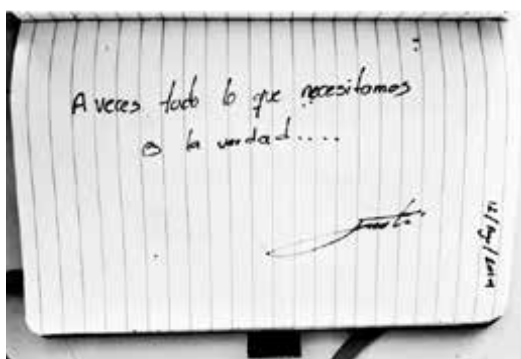 A veces todo lo que necesitamos
es la verdad....